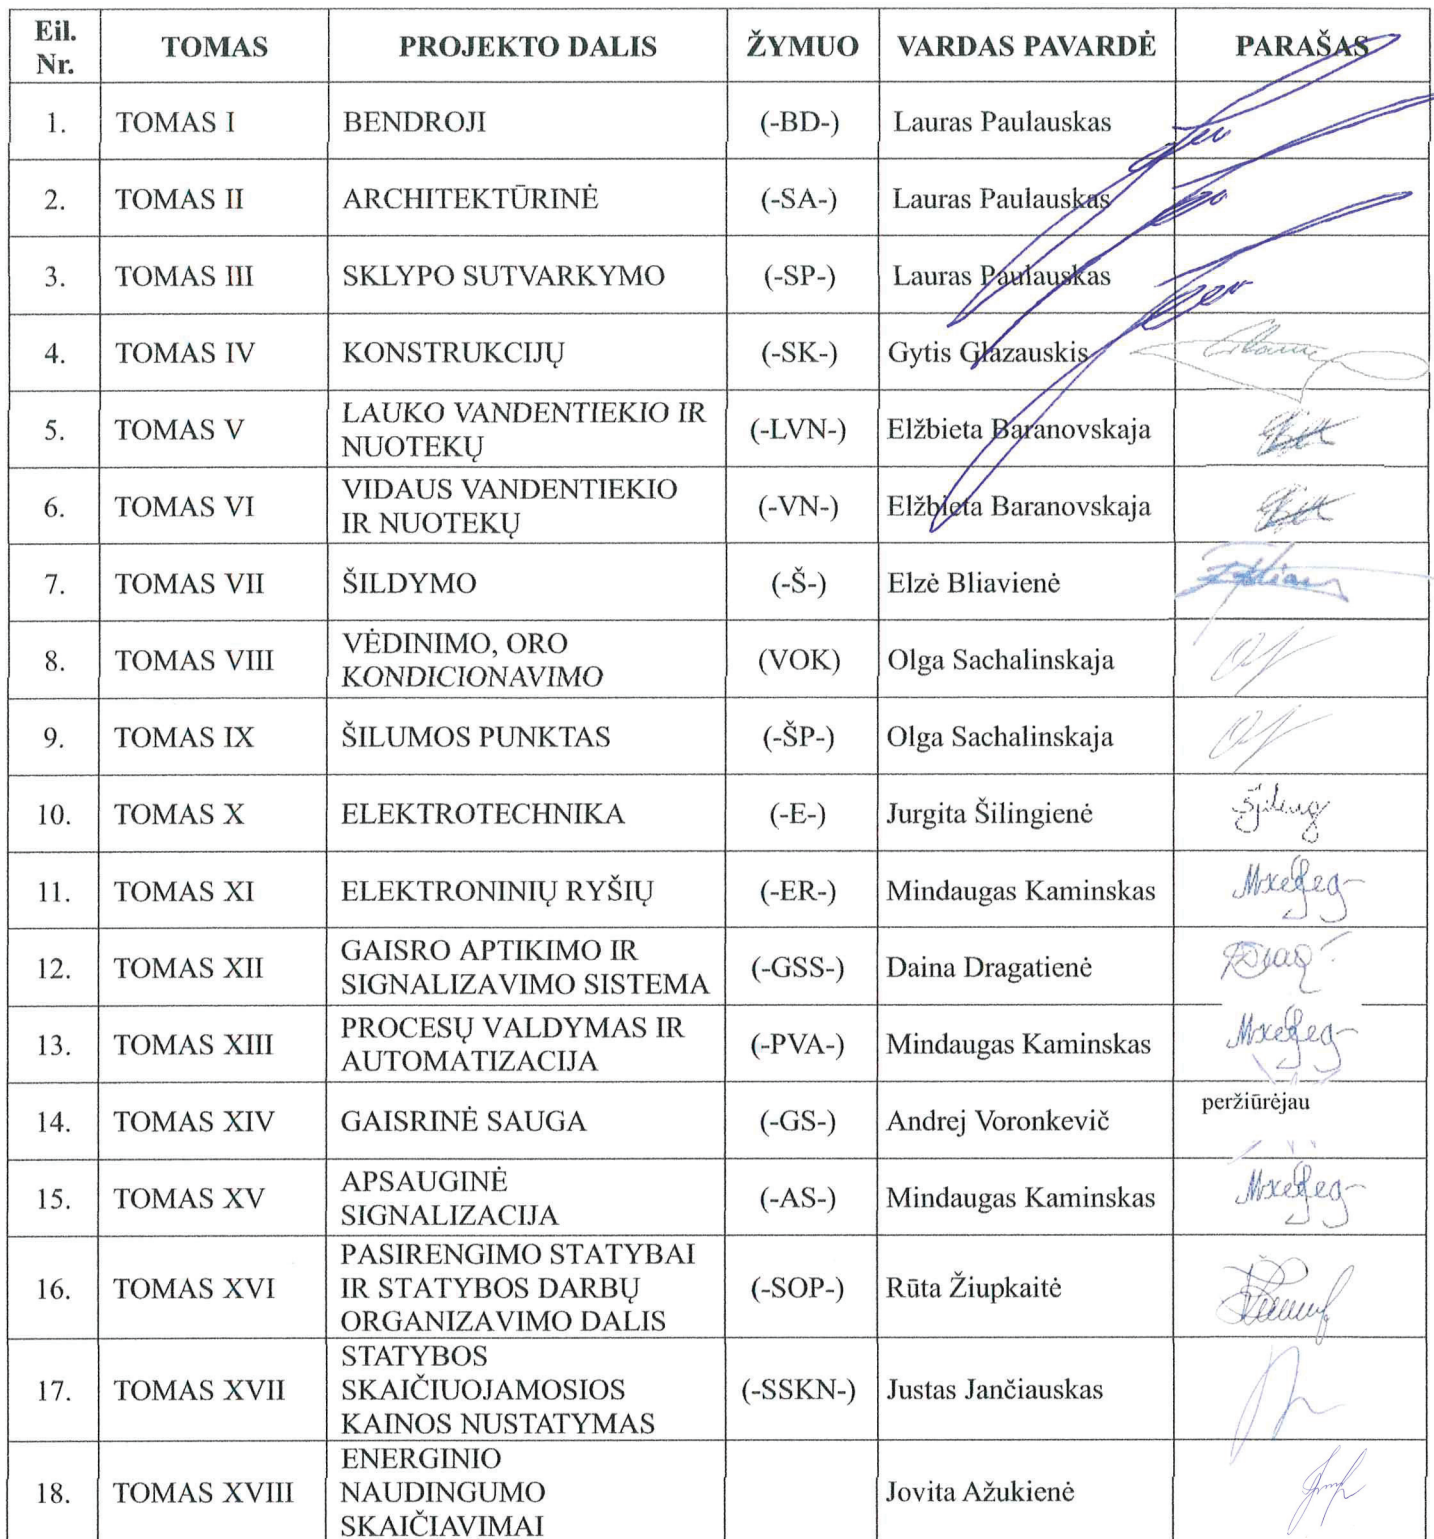 Eil. Nr. TOMAS PROJEKTO DALIS ŽYMUO VARDAS PAVARDĖ PARAŠAS
1. TOMAS I BENDROJI (-BD-) Lauras Paulauskas
2. TOMAS II ARCHITEKTŪRINĖ (-SA-) Lauras Paulauskas
3. TOMAS III SKLYPO SUTVARKYMO (-SP-) Lauras Paulauskas
4. TOMAS IV KONSTRUKCIJŲ (-SK-) Gytis Glazauskis
5. TOMAS V LAUKO VANDENTIEKIO IR
NUOTEKŲ (-LVN-) Elžbieta Baranovskaja
6. TOMAS VI VIDAUS VANDENTIEKIO
IR NUOTEKŲ (-VN-) Elžbieta Baranovskaja
7. TOMAS VII ŠILDYMO (-Š-) Elzė Bliavienė
8. TOMAS VIII VĖDINIMO, ORO
KONDICIONAVIMO (VOK) Olga Sachalinskaja
9. TOMAS IX ŠILUMOS PUNKTAS (-ŠP-) Olga Sachalinskaja
10. TOMAS X ELEKTROTECHNIKA (-E-) Jurgita Šilingienė
11. TOMAS XI ELEKTRONINIŲ RYŠIŲ (-ER-) Mindaugas Kaminskas
12. TOMAS XII GAISRO APTIKIMO IR
SIGNALIZAVIMO SISTEMA (-GSS-) Daina Dragatienė
13. TOMAS XIII PROCESŲ VALDYMAS IR
AUTOMATIZACIJA (-PVA-) Mindaugas Kaminskas
14. TOMAS XIV GAISRINĖ SAUGA (-GS-) Andrej Voronkevič peržiūrėjau
15. TOMAS XV APSAUGINĖ
SIGNALIZACIJA (-AS-) Mindaugas Kaminskas
16. TOMAS XVI PASIRENGIMO STATYBAI
IR STATYBOS DARBŲ
ORGANIZAVIMO DALIS (-SOP-) Rūta Žiupkaitė
17. TOMAS XVII STATYBOS
SKAIČIUOJAMOSIOS
KAINOS NUSTATYMAS (-SSKN-) Justas Jančiauskas
18. TOMAS XVIII ENERGINIO
NAUDINGUMO
SKAIČIAVIMAI Jovita Ažukienė